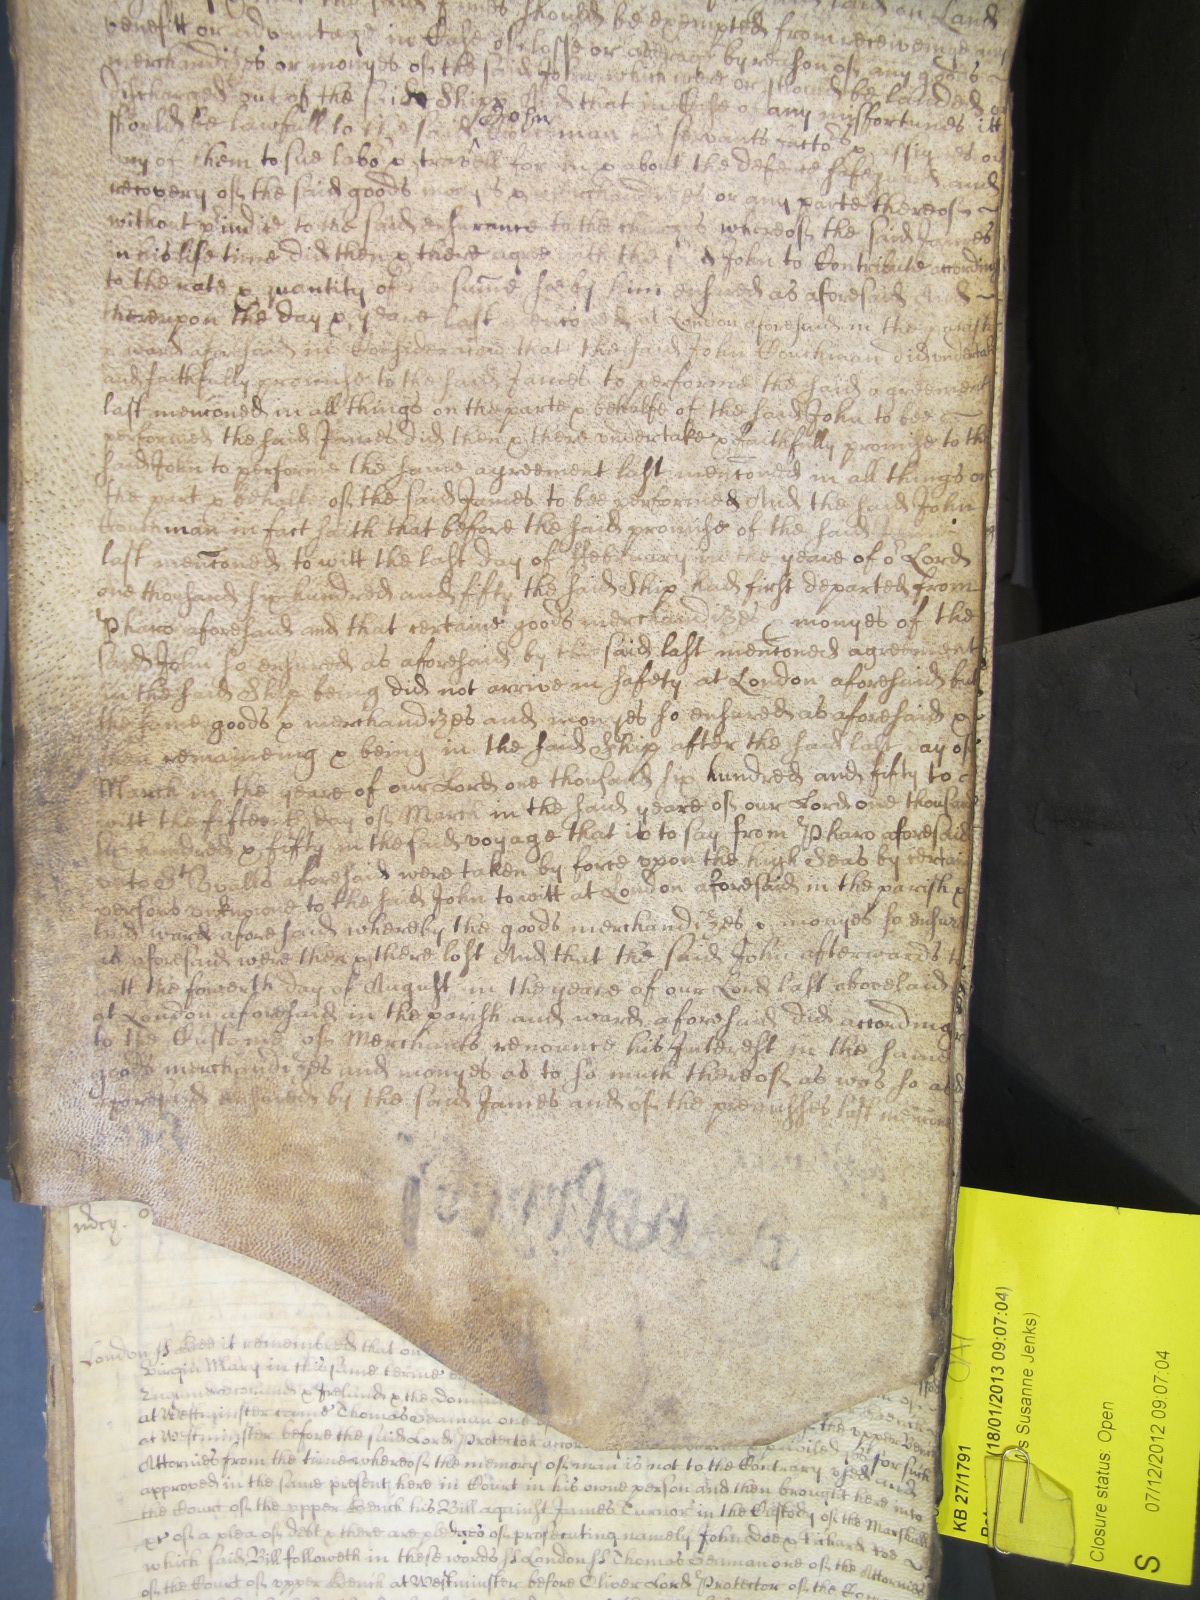 the said James should be exempted from receiveinge any
benefitt or advantage in Case of losse or average by reason of any goods
merchandizes or monyes of the said John which were or should be landed or
discharged out of the said Shipp And that in Case of any missfortunes itt
should be lawfull to the said John Couchman his servants facto's & assignes or
any of them to sue labo' & travell for in & about the defence safeguard and
recovery of the said goods monyes & merchandizes or any parte thereof
without p'iudice to the said ensurance to the charges whereof the said James
in his life time did then & there agree with the said John to Contribute according
to the rate & quantity of the summe soe by him ensured as aforesaid And
thereupon the day & yeare last menconed at London aforesaid in the parish
& ward aforesaid in Consideracon that the said John Couchman did undertake
and faithfully promise to the said James to performe the said agreement
last mencioned in all things on the parte & behalfe of the said John to bee
performed the said James did then & there undertake & faithfully promise to the
said John to performe the same agreement last mencioned in all things on
the part & behalfe of the said James to bee performed And the said John
Couchman in fact saith that before the said promise of the said James
last mencioned to witt the last day of ffebruary in the yeare of o' Lord
one thousand six hundred and fifty the said Ship had first departed from
Pharo aforesaid and that certaine goods merchandizes & monyes of the
said John so ensured as aforesaid by the said last mencioned agreement
in the said Ship being did not arrive in safety at London aforesaid but
the same goods & merchandizes and monyes so ensured as aforesaid &
then remaineing & being in the said Ship after the said last day of
March in the yeare of our Lord one thousand six hundred and fifty to
witt the fifteenth day of March in the said yeare of our Lord one thousand
six hundred & fifty in the said voyage that is to say from Pharo aforesaid
unto St Vvalls aforesaid were taken by force upon the high Seas by certain
persons unknowne to the said John to witt at London aforesaid in the parish &
ward aforesaid whereby the goods merchandizes & monyes so ensured
as aforesaid were then & there lost And that the said John afterwards to
witt the fowerth day of August in the yeare of our Lord last abovesaid
at London aforesaid in the parish and ward aforesaid did according
to the Custome of Merchants renounce his Interest in the same
goods merchandizes and monyes as to so much thereof as was so as
aforesaid ensured by the said James and of the premisses last mencioned
London ss Bee it remembred that on
Virgin Mary in this same terme
at Westminster came Thomas
at Westminster before the said Lord Protector
Attornies from the time whereof the memory of man is not to the Contrary used and
approved in the same present here in Court in his owne person and then brought here into
the Court of the upper Bench his Bill against James Turnor in the Custody of the Marshall
&c of a plea of debt & there are pledges of prosecuting namely John Doe & Richard Roe
which said Bill followeth in these words ss London ss Thomas one of the Attornies
of the Court of upper Bench at Westminster before Oliver Lord Protector of the
KB 27/1791
(18/01/2013 09:07:04)
Susanne Jenks)
Closure status: Open
07/12/2012 09:07:04
S